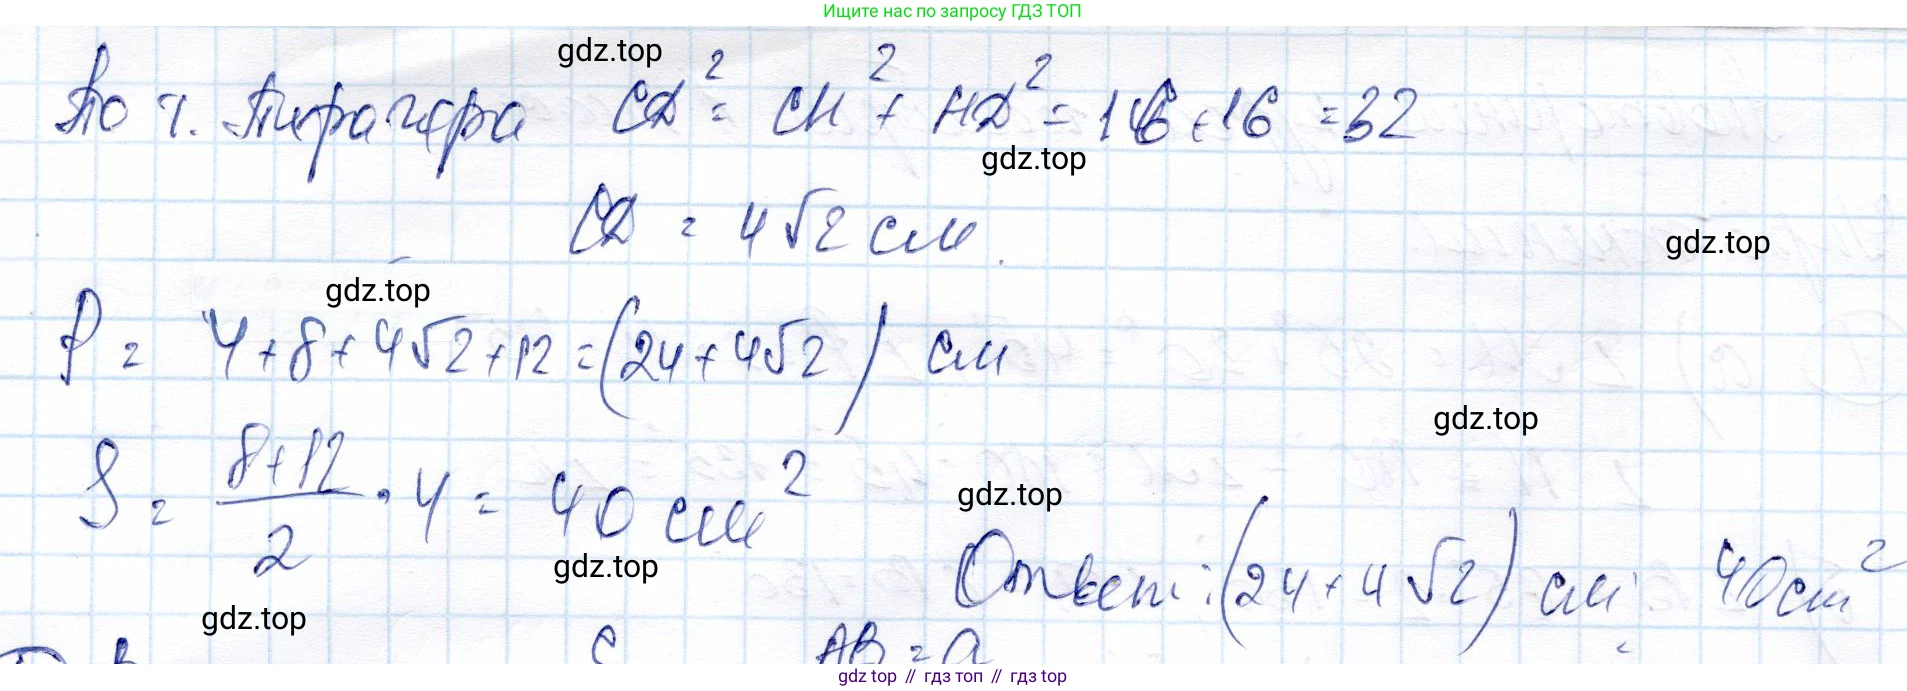 Ищите нас по запросу ГДЗ ТОП
gdz.top
По т. Пифагора CD² = CH² + HD² = 16 + 16 = 32
gdz.top
CD = 4√2 см.
gdz.top
gdz.top
P = 4 + 8 + 4√2 + 12 = (24 + 4√2) см
gdz.top
S = (8+12)/2 · 4 = 40 см²
gdz.top
gdz.top
Ответ: (24 + 4√2) см; 40 см²
gdz.top
AB = a
gdz.top // гдз топ // гдз top